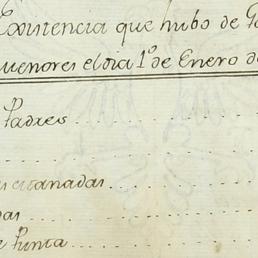 Existencia que hubo de Ga
menores el dia 1º de Enero de
Padres
as
de Punta